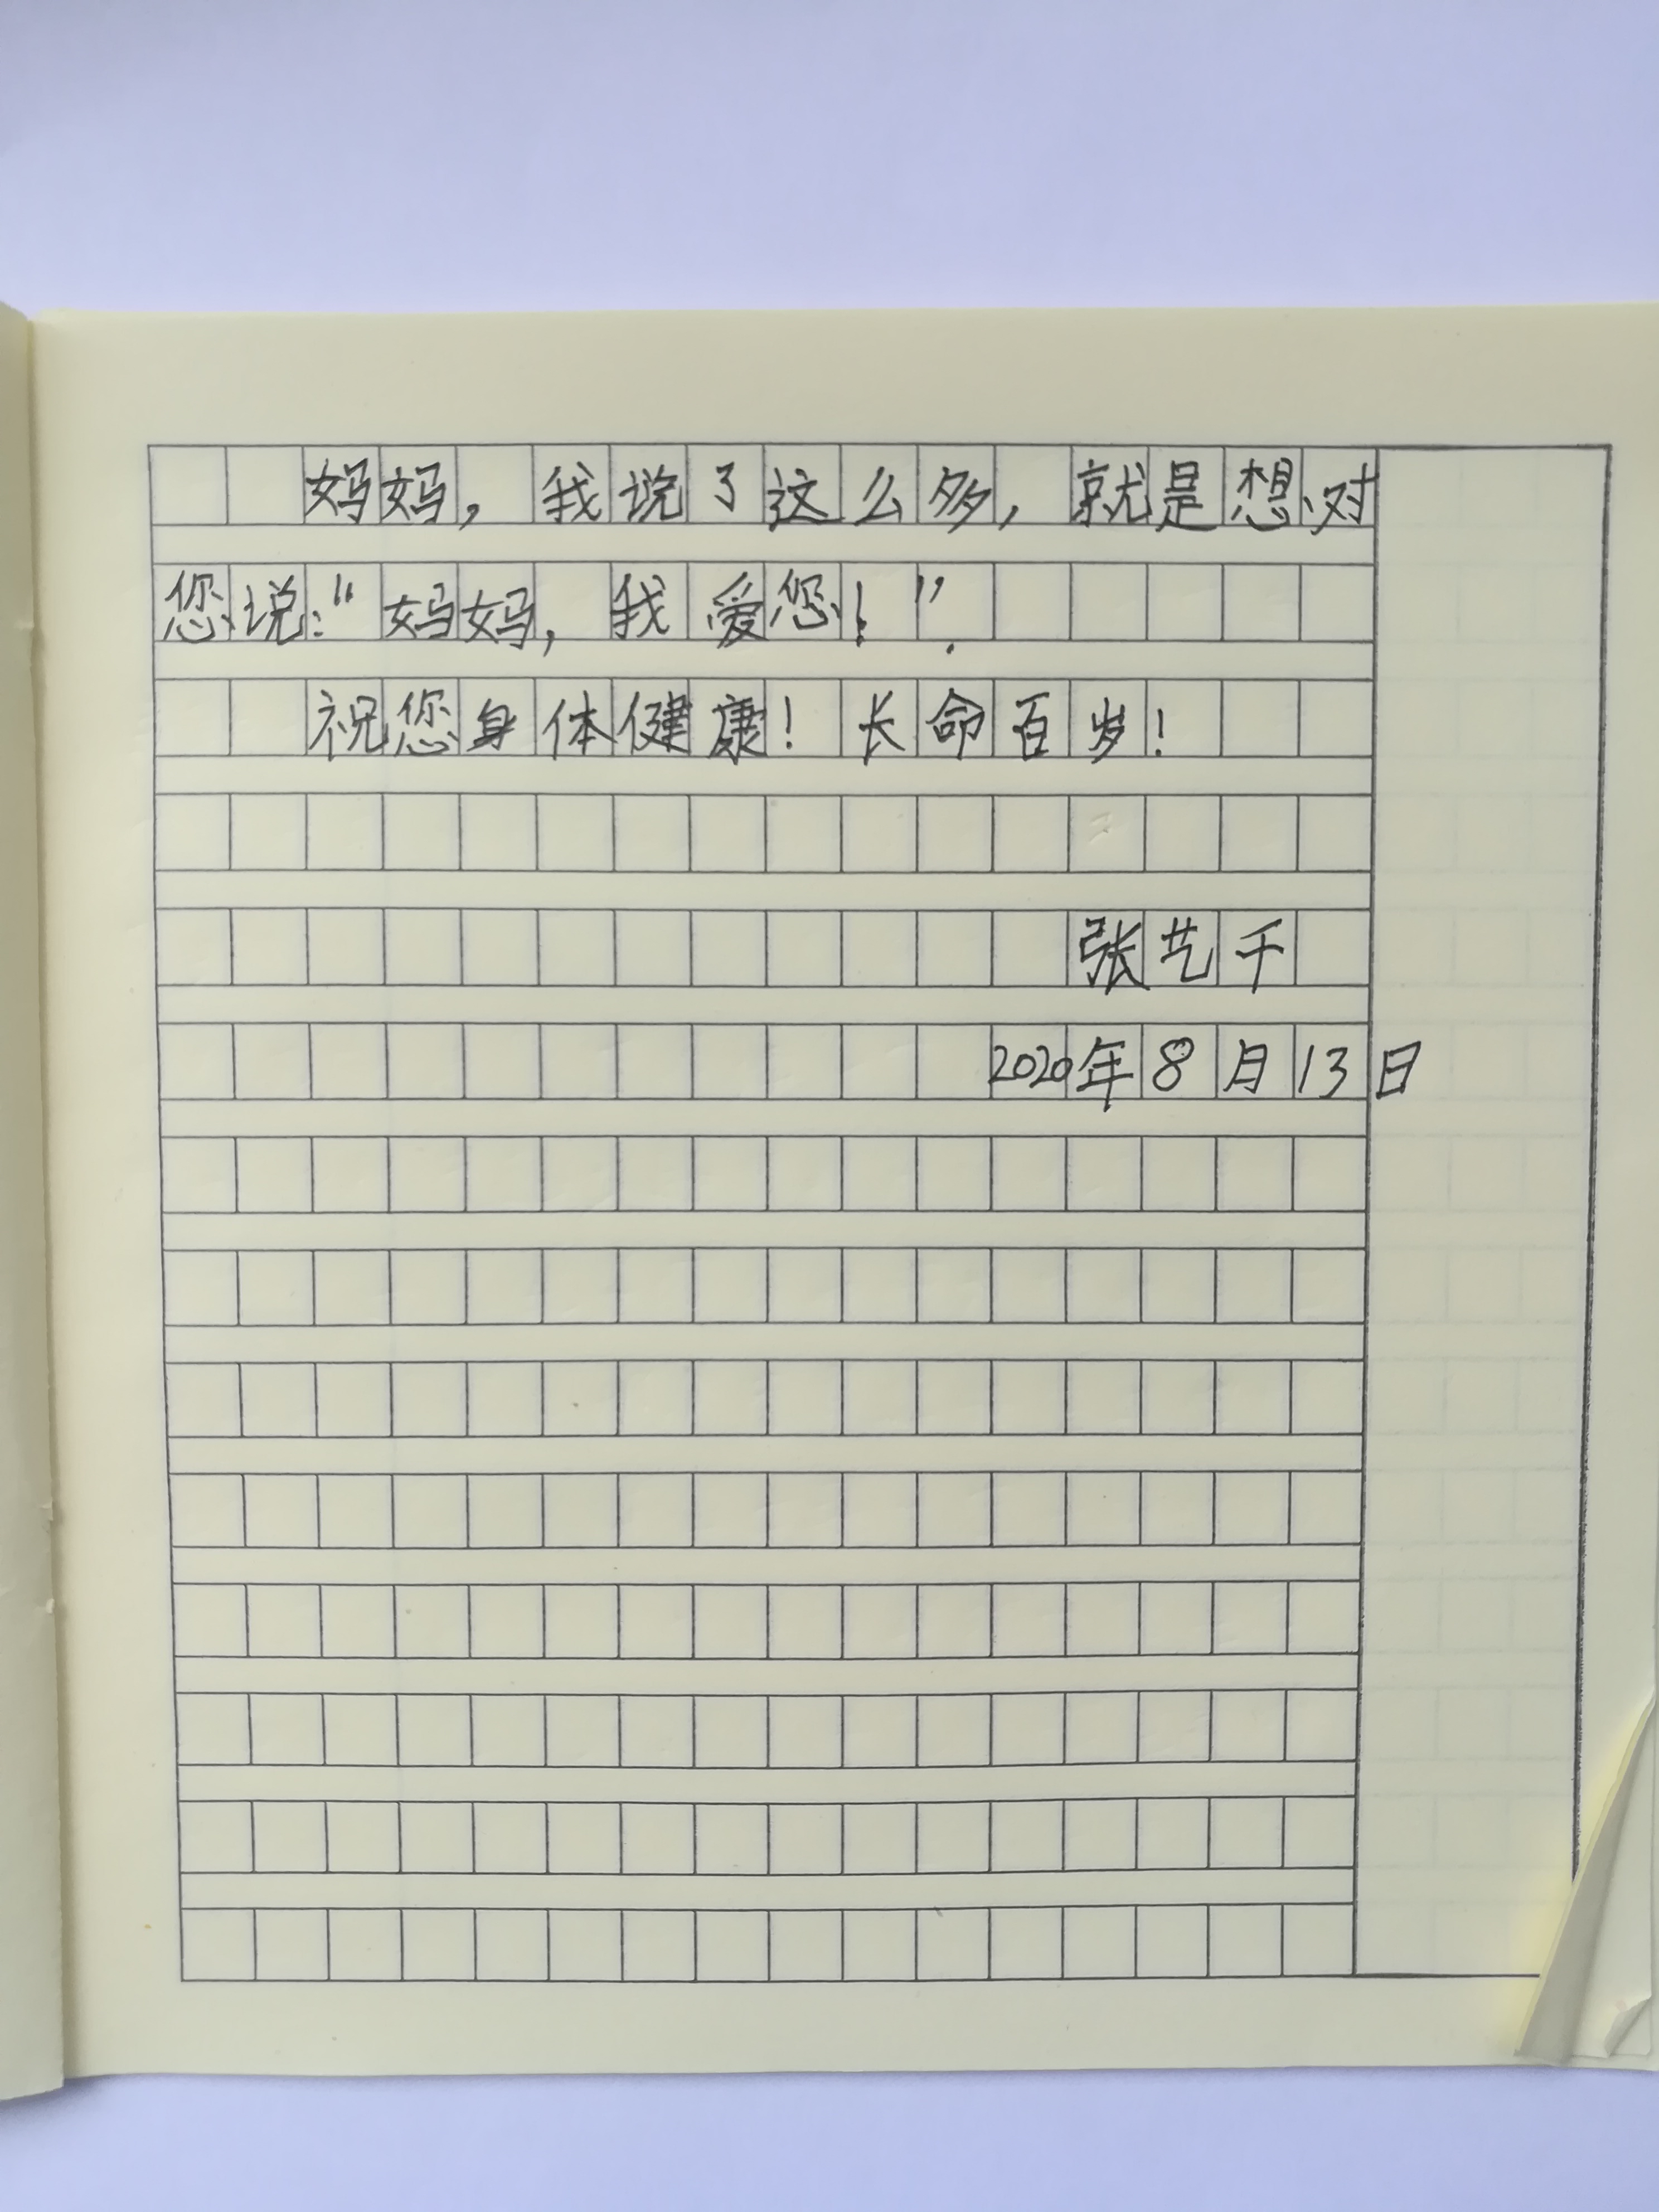 妈妈，我说了这么多，就是想对
您说：“妈妈，我爱您！”.
祝您身体健康！长命百岁！
张艺千
2020年8月13日